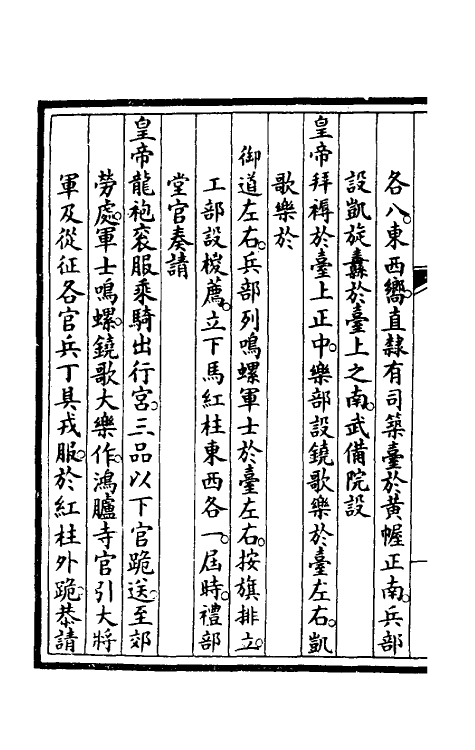 各八。東西嚮。直隸有司築臺於黃幄正南。兵部
設凱旋纛於臺上之南。武備院設
皇帝拜褥於臺上正中。樂部設鐃歌樂於臺左右。凱
歌樂於
御道左右。兵部列鳴螺軍士於臺左右。按旗排立。
工部設椶薦。立下馬紅柱東西各一。屆時。禮部
堂官奏請
皇帝龍袍袞服乘騎出行宮。三品以下官跪送。至郊
勞處。軍士鳴螺。鐃歌大樂作。鴻臚寺官引大將
軍及從征各官兵丁具戎服。於紅柱外跪。恭請